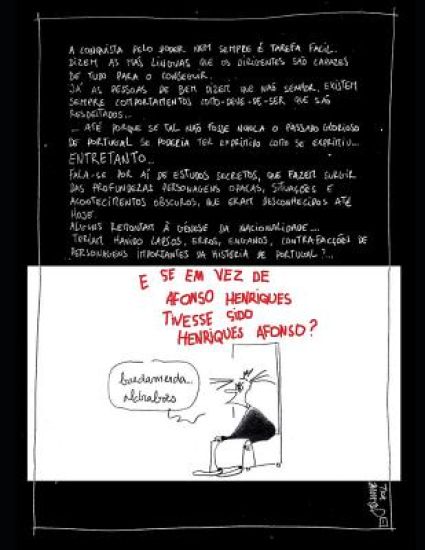 A CONQUISTA PELO PODER NEM SEMPRE É TAREFA FÁCIL..
DIZEM AS MÁS LÍNGUAS QUE OS DIRIGENTES SÃO CAPAZES
DE TUDO PARA O CONSEGUIR.
JÁ AS PESSOAS DE BEM DIZEM QUE NÃO SENHOR, EXISTEM
SEMPRE COMPORTAMENTOS COMO-DEVE-DE-SER QUE SÃO
RESPEITADOS...
... ATÉ PORQUE SE TAL NÃO FOSSE NUNCA O PASSADO GLORIOSO
DE PORTUGAL SE PODERIA TER EXPRIMIDO COMO SE EXPRIMIU...
ENTRETANTO...
FALA-SE POR AÍ DE ESTUDOS SECRETOS, QUE FAZEM SURGIR
DAS PROFUNDEZAS PERSONAGENS OPACAS, SITUAÇÕES E
ACONTECIMENTOS OBSCUROS, QUE ERAM DESCONHECIDOS ATÉ
HOJE.
ALGUNS REMONTAM À GÉNESE DA NACIONALIDADE...
TERIAM HAVIDO LAPSOS, ERROS, ENGANOS, CONTRAFACÇÕES DE
PERSONAGENS IMPORTANTES DA HISTÓRIA DE PORTUGAL?...
E SE EM VEZ DE
AFONSO HENRIQUES
TIVESSE SIDO
HENRIQUES AFONSO?
bardamerda...
aldrabões